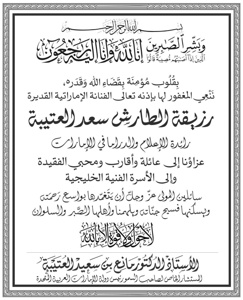 بسم الله الرحمن الرحيم
وبشر الصابرين
الذين إذا أصابتهم مصيبة قالوا
إنا لله وإنا إليه راجعون
بقلوب مؤمنة بقضاء الله وقدره،
ننعي المغفور لها بإذنه تعالى الفنانة الإماراتية القديرة
رزيقة الطارش سعد العتيبة
رائدة الإعلام والدراما في الإمارات
عزاؤنا إلى عائلة وأقارب ومحبي الفقيدة
وإلى الأسرة الفنية الخليجية
سائلين المولى عز وجل أن يتغمدها بواسع رحمته
ويسكنها فسيح جناته ويلهمنا وأهلها الصبر والسلوان
لا حول ولا قوة إلا بالله
الأستاذ الدكتور مانع بن سعيد العتيبة
المستشار الخاص لصاحب السمو رئيس دولة الإمارات العربية المتحدة